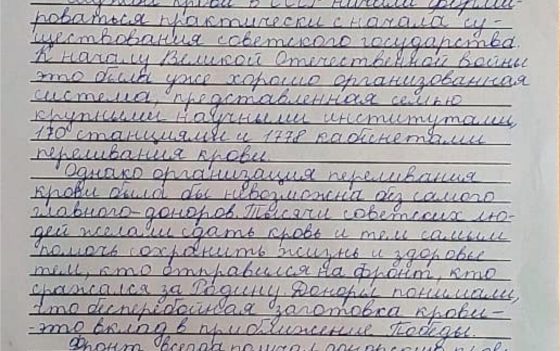 крови в СССР начали форми-
роваться практически с начала су-
ществования советского государства.
К началу Великой Отечественной войны
это была уже хорошо организованная
система, представленная семью
крупными научными институтами,
170 станциями и 1778 кабинетами
переливания крови.
Однако организация переливания
крови была бы невозможна без самого
главного-доноров. Тысячи советских лю-
дей желали сдать кровь и тем самым
помочь сохранить жизнь и здоровье
тем, кто отправился на фронт, кто
сражался за Родину. Доноры понимали,
что бесперебойная заготовка крови-
-это вклад в приближение Победы.
Фронт всегда